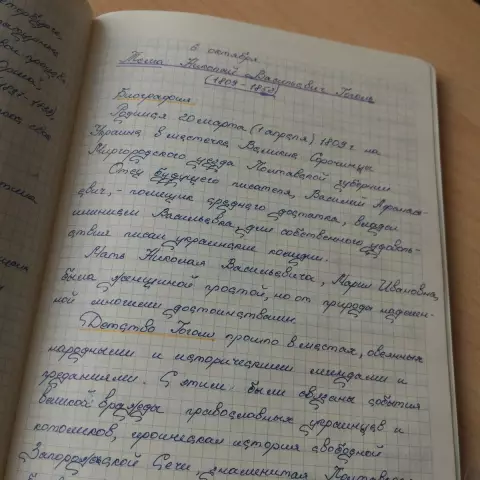 6 октября
Тема: Николай Васильевич Гоголь
(1809-1852)
Биография
Родился 20 марта (1 апреля) 1809 г. на
Украине в местечке Великие Сорочинцы
Миргородского уезда Полтавской губернии
Отец будущего писателя, Василий Афанась-
евич, - помещик среднего достатка, владел
имением Васильевка, для собственного удоволь-
ствия писал украинские комедии.
Мать Николая Васильевича, Мария Ивановна,
была женщиной простой, но от природы наделен-
ной многими достоинствами.
Детство Гоголя прошло в местах, овеянных
народными и историческими легендами и
преданиями. С этим были связаны события
великой вражды православных украинцев и
католиков, героическая история свободной
Запорожской Сечи, знаменитая Полтавская